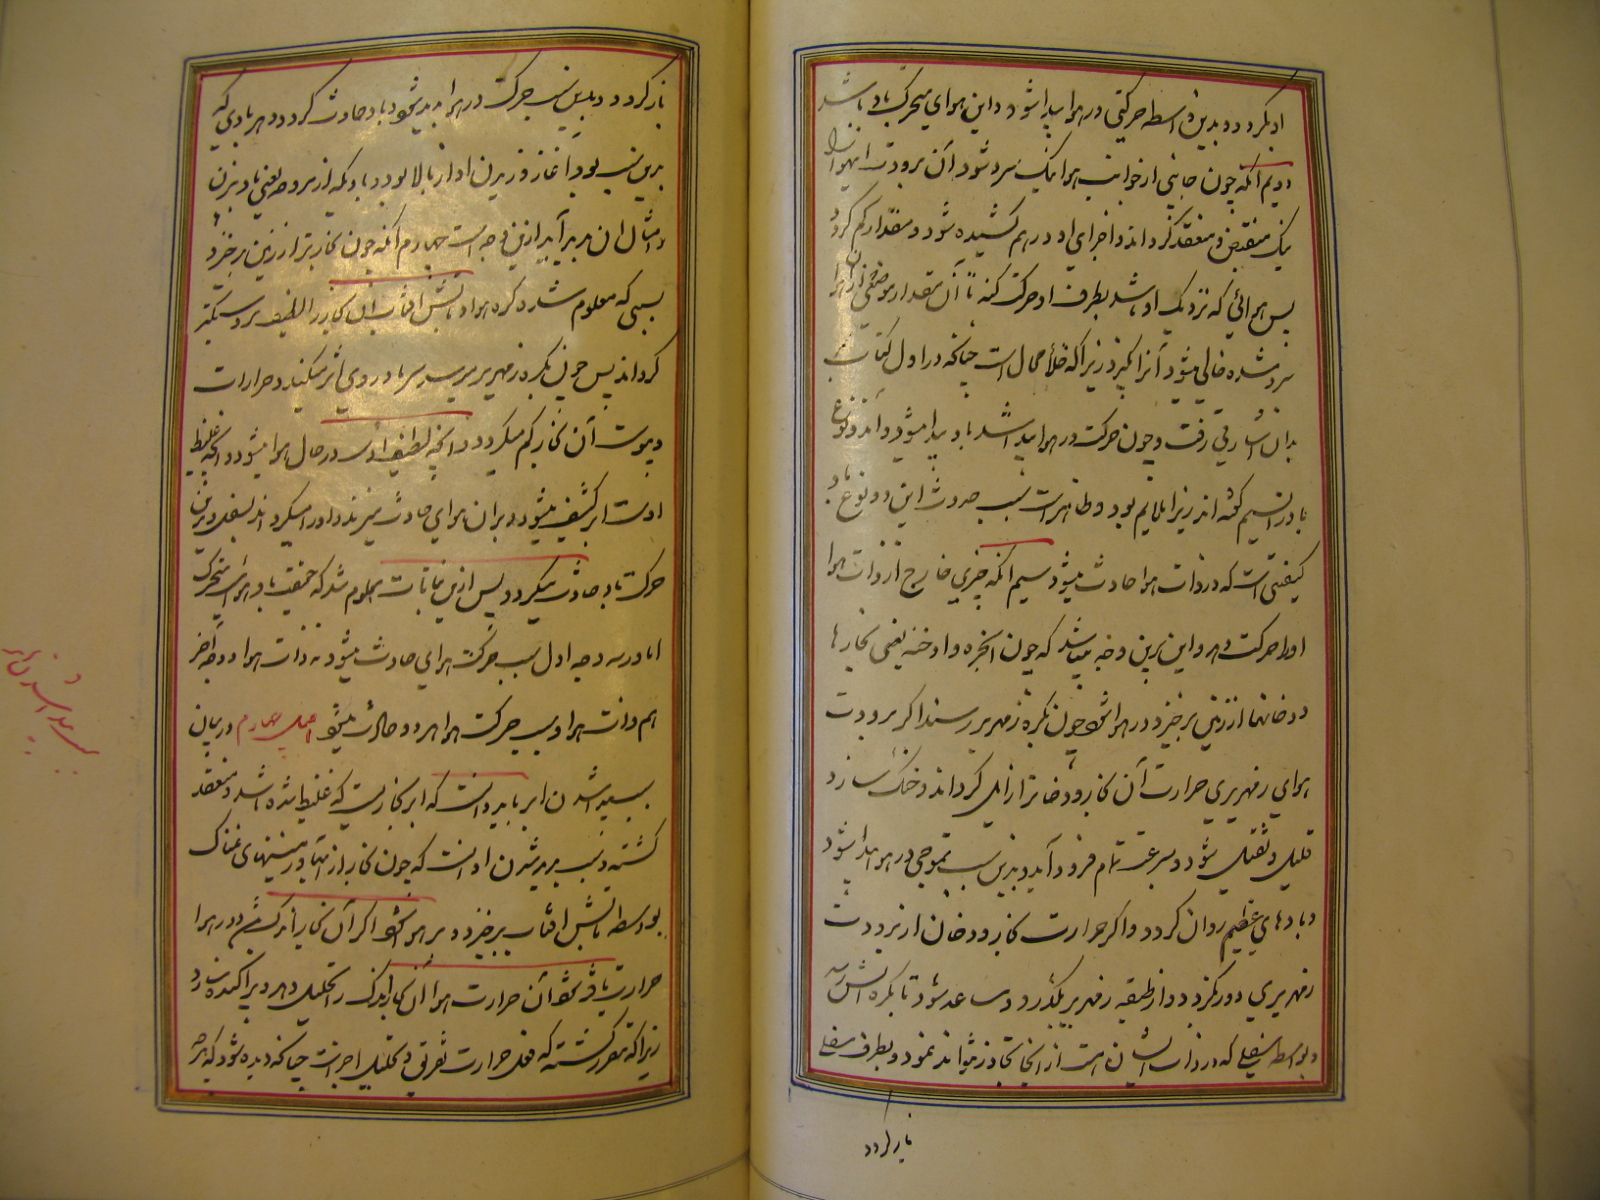 او بگردد و بدین واسطه حرکتی در هوا پیدا شود و این هوای متحرک باد باشد
دویم آنکه چون جانبی از جوانب هوا نیک سرد شود آن برودت آن هوا را
نیک منقبض و منعقد گرداند و اجزای او درهم کشیده شود و مقدار کم گردد
پس هوائی که نزدیک او باشد بطرف او حرکت کند تا آن مقدار موضعی را که از هوا
سرد شده خالی میشود آنرا بگیرد زیرا که خلأ محال است چنانکه در اول کتاب
بدان اشارتی رفت و چون حرکت در هوا پیدا شد باد پیدا میشود و این نوع
باد را نسیم گفته اند زیرا ملایم بود و ظاهر است سبب حدوث این دو نوع باد
کیفیتی است که در ذات هوا حادث میشود سیم آنکه چیزی خارج از ذات هوا
او را حرکت دهد و این برین وجه میباشد که چون ابخره و ادخنه یعنی بخارها
و دخانها از زمین برخیزد و در هوا شود چون بکره زمهریر رسند اگر برودت
هوای زمهریری حرارت آن بخار و دخانرا زایل گرداند و خنک سازد
قلیل و ثقیل شود و بسرعت تمام فرود آید و بدین سبب تموجی در هوا پیدا شود
و بادهای عظیم روان گردد و اگر حرارت بخار و دخان از برودت
زمهریری دور نگردد و از طبقه زمهریر بگذرد و متصاعد شود تا بکره آتش رسد
و بواسطه ثقلی که در ذات ایشان است از آنجا تجاوز نتواند نمود و بطرف سفلی
باز گردد
باز گردد و بدین سبب حرکت در هوا پدید شود و باد حادث گردد و هر بادی که
برین سبب بود آغاز وزیدن او از بالا بود و بادیکه از مروحه یعنی بادبزن
و امثال آن پدید آید ازین وجه است چهارم آنکه چون بخار تر از زمین برخیزد
بسببی که معلوم شد در کره هوا و تابش آفتاب آن بخار را لطیف‌تر و سبکتر
گرداند پس چون بکره زمهریر برسد سرما در وی اثر میکند و حرارات
و یبوست آن بخار کم میگردد و آنچه لطیف اوست در حال هوا میشود و آنچه غلیظ
اوست ابر کثیف میشود و بران هوای حادث میزند و او را میگرداند بسفل و ازین
حرکت باد حادث میگردد پس ازین بیانات معلوم شد که حقیقت باد هوای متحرک است
اما در سه وجه اول سبب حرکت هوایی حادث میشود نه ذات هوا و در وجه آخر
هم ذات هوا و سبب حرکت هوا هر دو حادث میشود اصل چهارم در بیان
سبب پیدا شدن ابر بباید دانست که ابر بخاریست که غلیظ شده باشد و منعقد
گشته و سبب پدید شدن او آنست که چون بخار از آبها و زمینهای نمناک
بواسطه تابش آفتاب برخیزد و بر هوا شود اگر آن بخار اندک باشد و در هوا
حرارت یافت شود آن حرارت هوا آن بخار اندک را تحلیل دهد و پراکنده سازد
زیرا که مقرر گشته که فعل حرارت تفریق و تحلیل اجزاست چنانکه دیده شود که
سبب پیدا شدن ابر